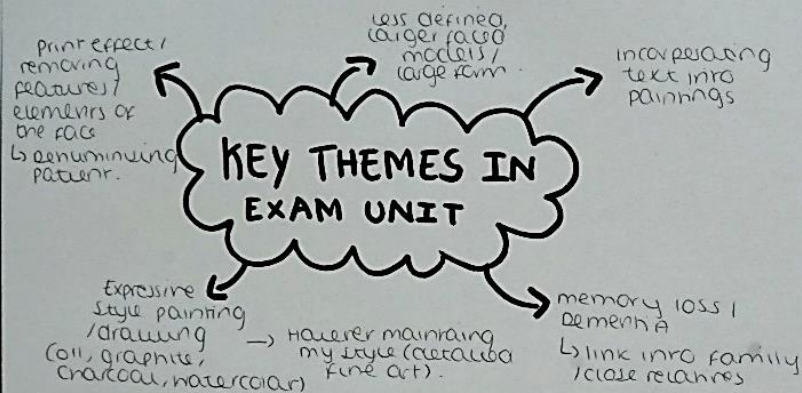 Print effect /
removing
features /
elements of
the face
↳ dehuminising
patient.
Less defined,
larger faced
models /
large form.
incorperating
text into
paintings
KEY THEMES IN
EXAM UNIT
Expressive
style painting
/drawing
(oil, graphite,
charcoal, watercolor)
→ However maintaing
my style (detailed
fine art).
memory loss /
DEMENTIA
↳ link into family
/close relatives